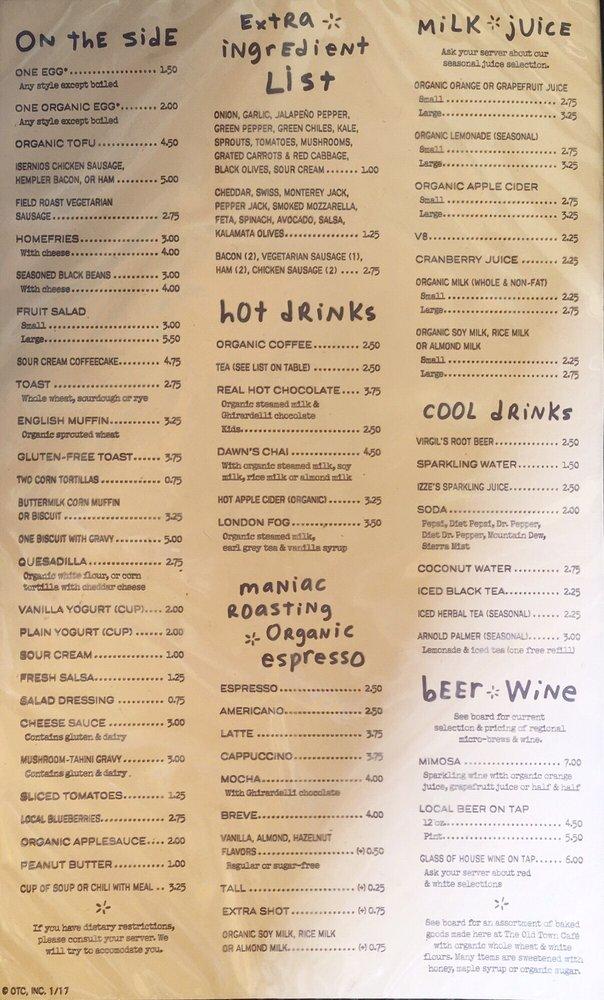 ON the SIDE
ONE EGG* 1.50
Any style except boiled
ONE ORGANIC EGG* 2.00
Any style except boiled
ORGANIC TOFU 4.50
ISERNIOS CHICKEN SAUSAGE,
HEMPLER BACON, OR HAM 5.00
FIELD ROAST VEGETARIAN
SAUSAGE 2.75
HOMEFRIES 3.00
With cheese 4.00
SEASONED BLACK BEANS 3.00
With cheese 4.00
FRUIT SALAD
Small 3.00
Large 5.50
SOUR CREAM COFFEECAKE 4.75
TOAST 2.75
Whole wheat, sourdough or rye
ENGLISH MUFFIN 3.25
Organic sprouted wheat
GLUTEN-FREE TOAST 3.75
TWO CORN TORTILLAS 0.75
BUTTERMILK CORN MUFFIN
OR BISCUIT 3.25
ONE BISCUIT WITH GRAVY 5.00
QUESADILLA 2.75
Organic white flour, or corn
tortilla with cheddar cheese
VANILLA YOGURT (CUP) 2.00
PLAIN YOGURT (CUP) 2.00
SOUR CREAM 1.00
FRESH SALSA 1.25
SALAD DRESSING 0.75
CHEESE SAUCE 3.00
Contains gluten & dairy
MUSHROOM-TAHINI GRAVY 3.00
Contains gluten & dairy.
SLICED TOMATOES 1.25
LOCAL BLUEBERRIES 2.75
ORGANIC APPLESAUCE 2.00
PEANUT BUTTER 1.00
CUP OF SOUP OR CHILI WITH MEAL 3.25
If you have dietary restrictions,
please consult your server. We
will try to accomodate you.
© OTC, INC. 1/17
Extra
ingredient
List
ONION, GARLIC, JALAPEÑO PEPPER,
GREEN PEPPER, GREEN CHILES, KALE,
SPROUTS, TOMATOES, MUSHROOMS,
GRATED CARROTS & RED CABBAGE,
BLACK OLIVES, SOUR CREAM 1.00
CHEDDAR, SWISS, MONTEREY JACK,
PEPPER JACK, SMOKED MOZZARELLA,
FETA, SPINACH, AVOCADO, SALSA,
KALAMATA OLIVES 1.25
BACON (2), VEGETARIAN SAUSAGE (1),
HAM (2), CHICKEN SAUSAGE (2) 2.75
hot drinks
ORGANIC COFFEE 2.50
TEA (SEE LIST ON TABLE) 2.50
REAL HOT CHOCOLATE 3.75
Organic steamed milk &
Ghirardelli chocolate
Kids 2.50
DAWN'S CHAI 4.50
With organic steamed milk, soy
milk, rice milk or almond milk
HOT APPLE CIDER (ORGANIC) 3.25
LONDON FOG 3.50
Organic steamed milk,
earl grey tea & vanilla syrup
maniac
Roasting
Organic
espresso
ESPRESSO 2.50
AMERICANO 2.50
LATTE 3.75
CAPPUCCINO 3.75
MOCHA 4.00
With Ghirardelli chocolate
BREVE 4.00
VANILLA, ALMOND, HAZELNUT
FLAVORS (+) 0.50
Regular or sugar-free
TALL (+) 0.25
EXTRA SHOT (+) 0.75
ORGANIC SOY MILK, RICE MILK
OR ALMOND MILK (+) 0.75
MiLK juice
Ask your server about our
seasonal juice selection.
ORGANIC ORANGE OR GRAPEFRUIT JUICE
Small 2.75
Large 3.25
ORGANIC LEMONADE (SEASONAL)
Small 2.75
Large 3.25
ORGANIC APPLE CIDER
Small 2.75
Large 3.25
V8 2.25
CRANBERRY JUICE 2.25
ORGANIC MILK (WHOLE & NON-FAT)
Small 2.25
Large 2.75
ORGANIC SOY MILK, RICE MILK
OR ALMOND MILK
Small 2.25
Large 2.75
COOL dRiNKs
VIRGIL'S ROOT BEER 2.50
SPARKLING WATER 1.50
IZZE'S SPARKLING JUICE 2.50
SODA 2.00
Pepsi, Diet Pepsi, Dr. Pepper,
Diet Dr. Pepper, Mountain Dew,
Sierra Mist
COCONUT WATER 2.75
ICED BLACK TEA 2.25
ICED HERBAL TEA (SEASONAL) 2.25
ARNOLD PALMER (SEASONAL) 3.00
Lemonade & iced tea (one free refill)
bEER WiNe
See board for current
selection & pricing of regional
micro-brews & wine.
MIMOSA 7.00
Sparkling wine with organic orange
juice, grapefruit juice or half & half
LOCAL BEER ON TAP
12 oz. 4.50
Pint 5.50
GLASS OF HOUSE WINE ON TAP 6.00
Ask your server about red
& white selections
See board for an assortment of baked
goods made here at The Old Town Café
with organic whole wheat & white
flours. Many items are sweetened with
honey, maple syrup or organic sugar.